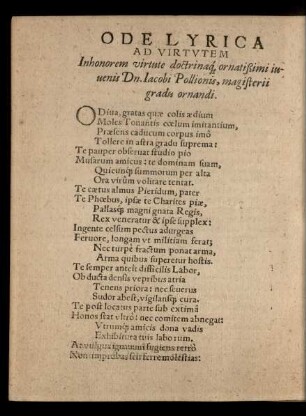 ODE LYRICA
AD VIRTVTEM
In honorem virtute doctrinaq́; ornatißimi iu-
uenis Dn. Iacobi Pollionis, magisterii
gradu ornandi.
O Diua, gratas quæ colis ædium
Moles Tonantis cœlum imitantium,
Præsens caducum corpus imò
Tollere in astra gradu suprema:
Te pauper obseruat studio pio
Musarum amicus: te dominam suam,
Quicunq́; summorum per alta
Ora virûm volitare tentat.
Te cœtus almus Pieridum, pater
Te Phœbus, ipsæ te Charites piæ,
Pallasq́; magni gnata Regis,
Rex veneratur & ipse supplex:
Ingente celsum pectus adurgeas
Feruore, longam vt militiam ferat;
Nec turpè fractum ponat arma,
Arma quibus superetur hostis.
Te semper anteit difficilis Labor,
Obducta densa vepribus atria
Tenens priora: nec seuerus
Sudor abest, vigilansq́; cura.
Te post locatus parte sub extimâ
Honos stat vltrò: nec comitem abnegat:
Vtrumq́; amicis dona vadis
Exhibitura tuis laborum,
At vulgus ignauum fugiens retrò
Non improbas scit ferre molestias: